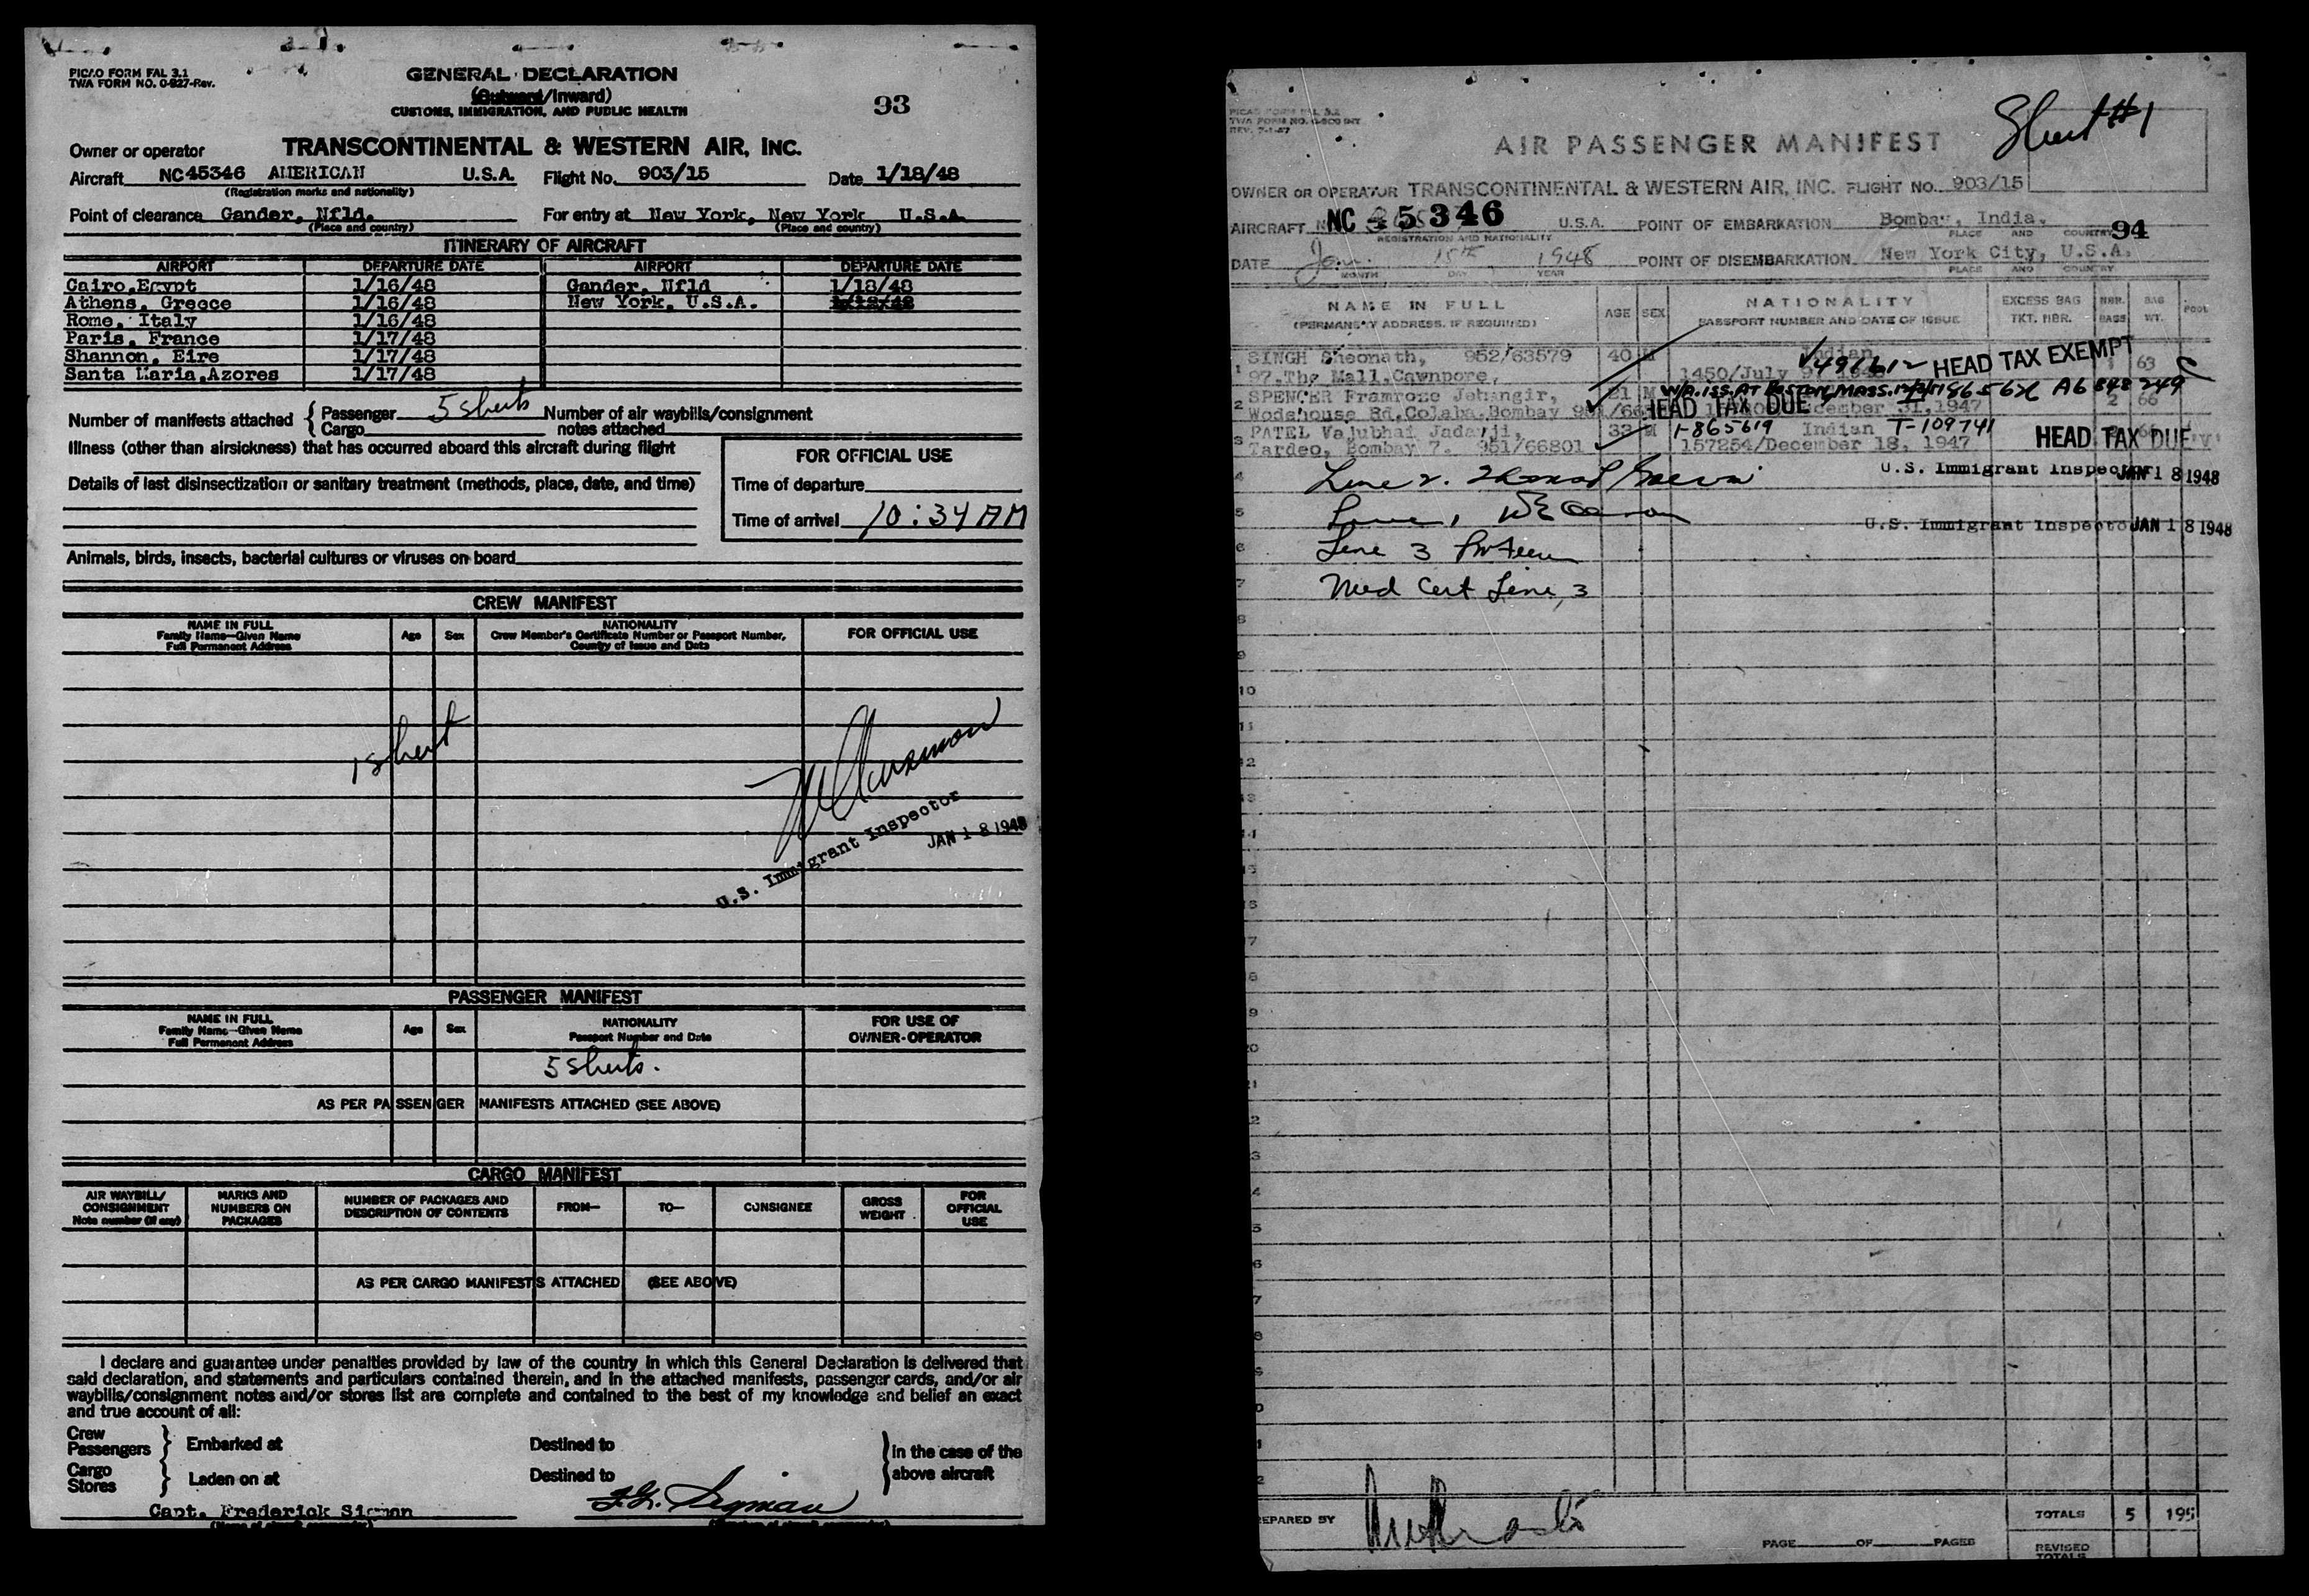 PICAO FORM FAL 3.1
TWA FORM NO. O-827-Rev.
GENERAL DECLARATION
(Outward/Inward)
CUSTOMS, IMMIGRATION, AND PUBLIC HEALTH
93
Owner or operator TRANSCONTINENTAL & WESTERN AIR, INC.
Aircraft NC45346 AMERICAN U.S.A. Flight No. 903/15 Date 1/18/48
(Registration marks and nationality)
Point of clearance Gander, Nfld. For entry at New York, New York U.S.A.
(Place and country) (Place and country)
ITINERARY OF AIRCRAFT
AIRPORT DEPARTURE DATE AIRPORT DEPARTURE DATE
Cairo,Egypt 1/16/48 Gander, Nfld 1/18/48
Athens, Greece 1/16/48 New York, U.S.A.
Rome, Italy 1/16/48
Paris, France 1/17/48
Shannon, Eire 1/17/48
Santa Maria,Azores 1/17/48
Number of manifests attached { Passenger 5 sheets Number of air waybills/consignment
{ Cargo notes attached
Illness (other than airsickness) that has occurred aboard this aircraft during flight
FOR OFFICIAL USE
Details of last disinsectization or sanitary treatment (methods, place, date, and time)
Time of departure
Time of arrival 10:34 AM
Animals, birds, insects, bacterial cultures or viruses on board
CREW MANIFEST
NAME IN FULL
Family Name—Given Name
Full Permanent Address
Age Sex
NATIONALITY
Crew Member's Certificate Number or Passport Number,
Country of Issue and Date
FOR OFFICIAL USE
1 sheet
U.S. Immigrant Inspector
JAN 18 1948
PASSENGER MANIFEST
NAME IN FULL
Family Name—Given Name
Full Permanent Address
Age Sex
NATIONALITY
Passport Number and Date
FOR USE OF
OWNER-OPERATOR
5 sheets.
AS PER PASSENGER MANIFESTS ATTACHED (SEE ABOVE)
CARGO MANIFEST
AIR WAYBILL/
CONSIGNMENT
Note number (if any)
MARKS AND
NUMBERS ON
PACKAGES
NUMBER OF PACKAGES AND
DESCRIPTION OF CONTENTS
FROM— TO— CONSIGNEE
GROSS
WEIGHT
FOR
OFFICIAL
USE
AS PER CARGO MANIFESTS ATTACHED (SEE ABOVE)
I declare and guarantee under penalties provided by law of the country in which this General Declaration is delivered that
said declaration, and statements and particulars contained therein, and in the attached manifests, passenger cards, and/or air
waybills/consignment notes and/or stores list are complete and contained to the best of my knowledge and belief an exact
and true account of all:
Crew
Passengers } Embarked at Destined to } in the case of the
Cargo
Stores } Laden on at Destined to above aircraft
Capt. Frederick Sigman
PICAO FORM FAL 3.2
REV. 7-1-47
Sheet #1
AIR PASSENGER MANIFEST
OWNER OR OPERATOR TRANSCONTINENTAL & WESTERN AIR, INC. FLIGHT NO. 903/15
AIRCRAFT NC 45346 U.S.A. POINT OF EMBARKATION Bombay, India.
REGISTRATION AND NATIONALITY PLACE AND COUNTRY 94
DATE Jan. 15th 1948 POINT OF DISEMBARKATION New York City, U.S.A.
MONTH DAY YEAR PLACE AND COUNTRY
NAME IN FULL
(PERMANENT ADDRESS, IF REQUIRED)
AGE SEX
NATIONALITY
PASSPORT NUMBER AND DATE OF ISSUE
EXCESS BAG
TKT. NBR.
NBR.
BAGS
BAG
WT.
POOL
1 SINGH Sheonath, 952/63579 40 M Indian
491612 HEAD TAX EXEMPT
97.The Mall.Cawnpore. 1450/July 63
2 SPENCER Framroze Jehangir, 21 M
A6 848 249
Wodehouse Rd.Colaba.Bombay HEAD TAX DUE December 31,1947 2 66
3 PATEL Vajubhai Jadavji, 33 M 1-865619 Indian T-109741
Tardeo, Bombay 7. 951/66801 157254/December 18, 1947 HEAD TAX DUE
4 Line 2.
U.S. Immigrant Inspector JAN 18 1948
5 Line 1
U.S. Immigrant Inspector JAN 18 1948
6 Line 3
7 Med Cert Line 3
8
9
10
11
12
13
14
15
16
17
18
19
20
21
PREPARED BY
TOTALS 5 195
PAGE OF PAGES
REVISED
TOTALS